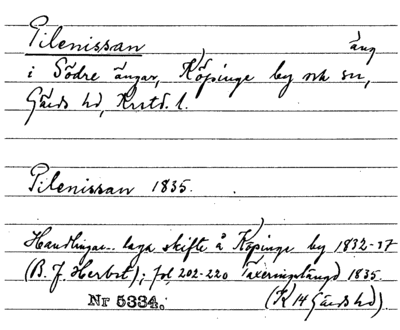 Pilenissan äng
i Södre ängar, Köpinge by och sn,
Gärds hd, Krstd. l.
Pilenissan 1835.
Handlingar.. laga skifte å Köpinge by 1832-37
(B. J. Herbst); fol. 202-220 Taxeringslängd 1835.
Nr 5334. (K 14 Gärds hd).